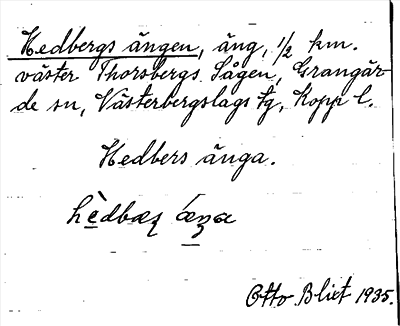 Hedbergs ängen, äng, 1/2 km.
väster Thorsbergs Sågen, Grangär-
de sn, Västerbergslags tg, Kopp l.
Hedbers änga.
Otto Blixt 1935.